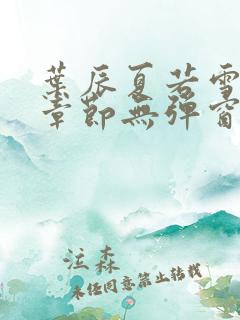 葉辰夏若雪
章節無彈窗
泣森
未经同意禁止转载